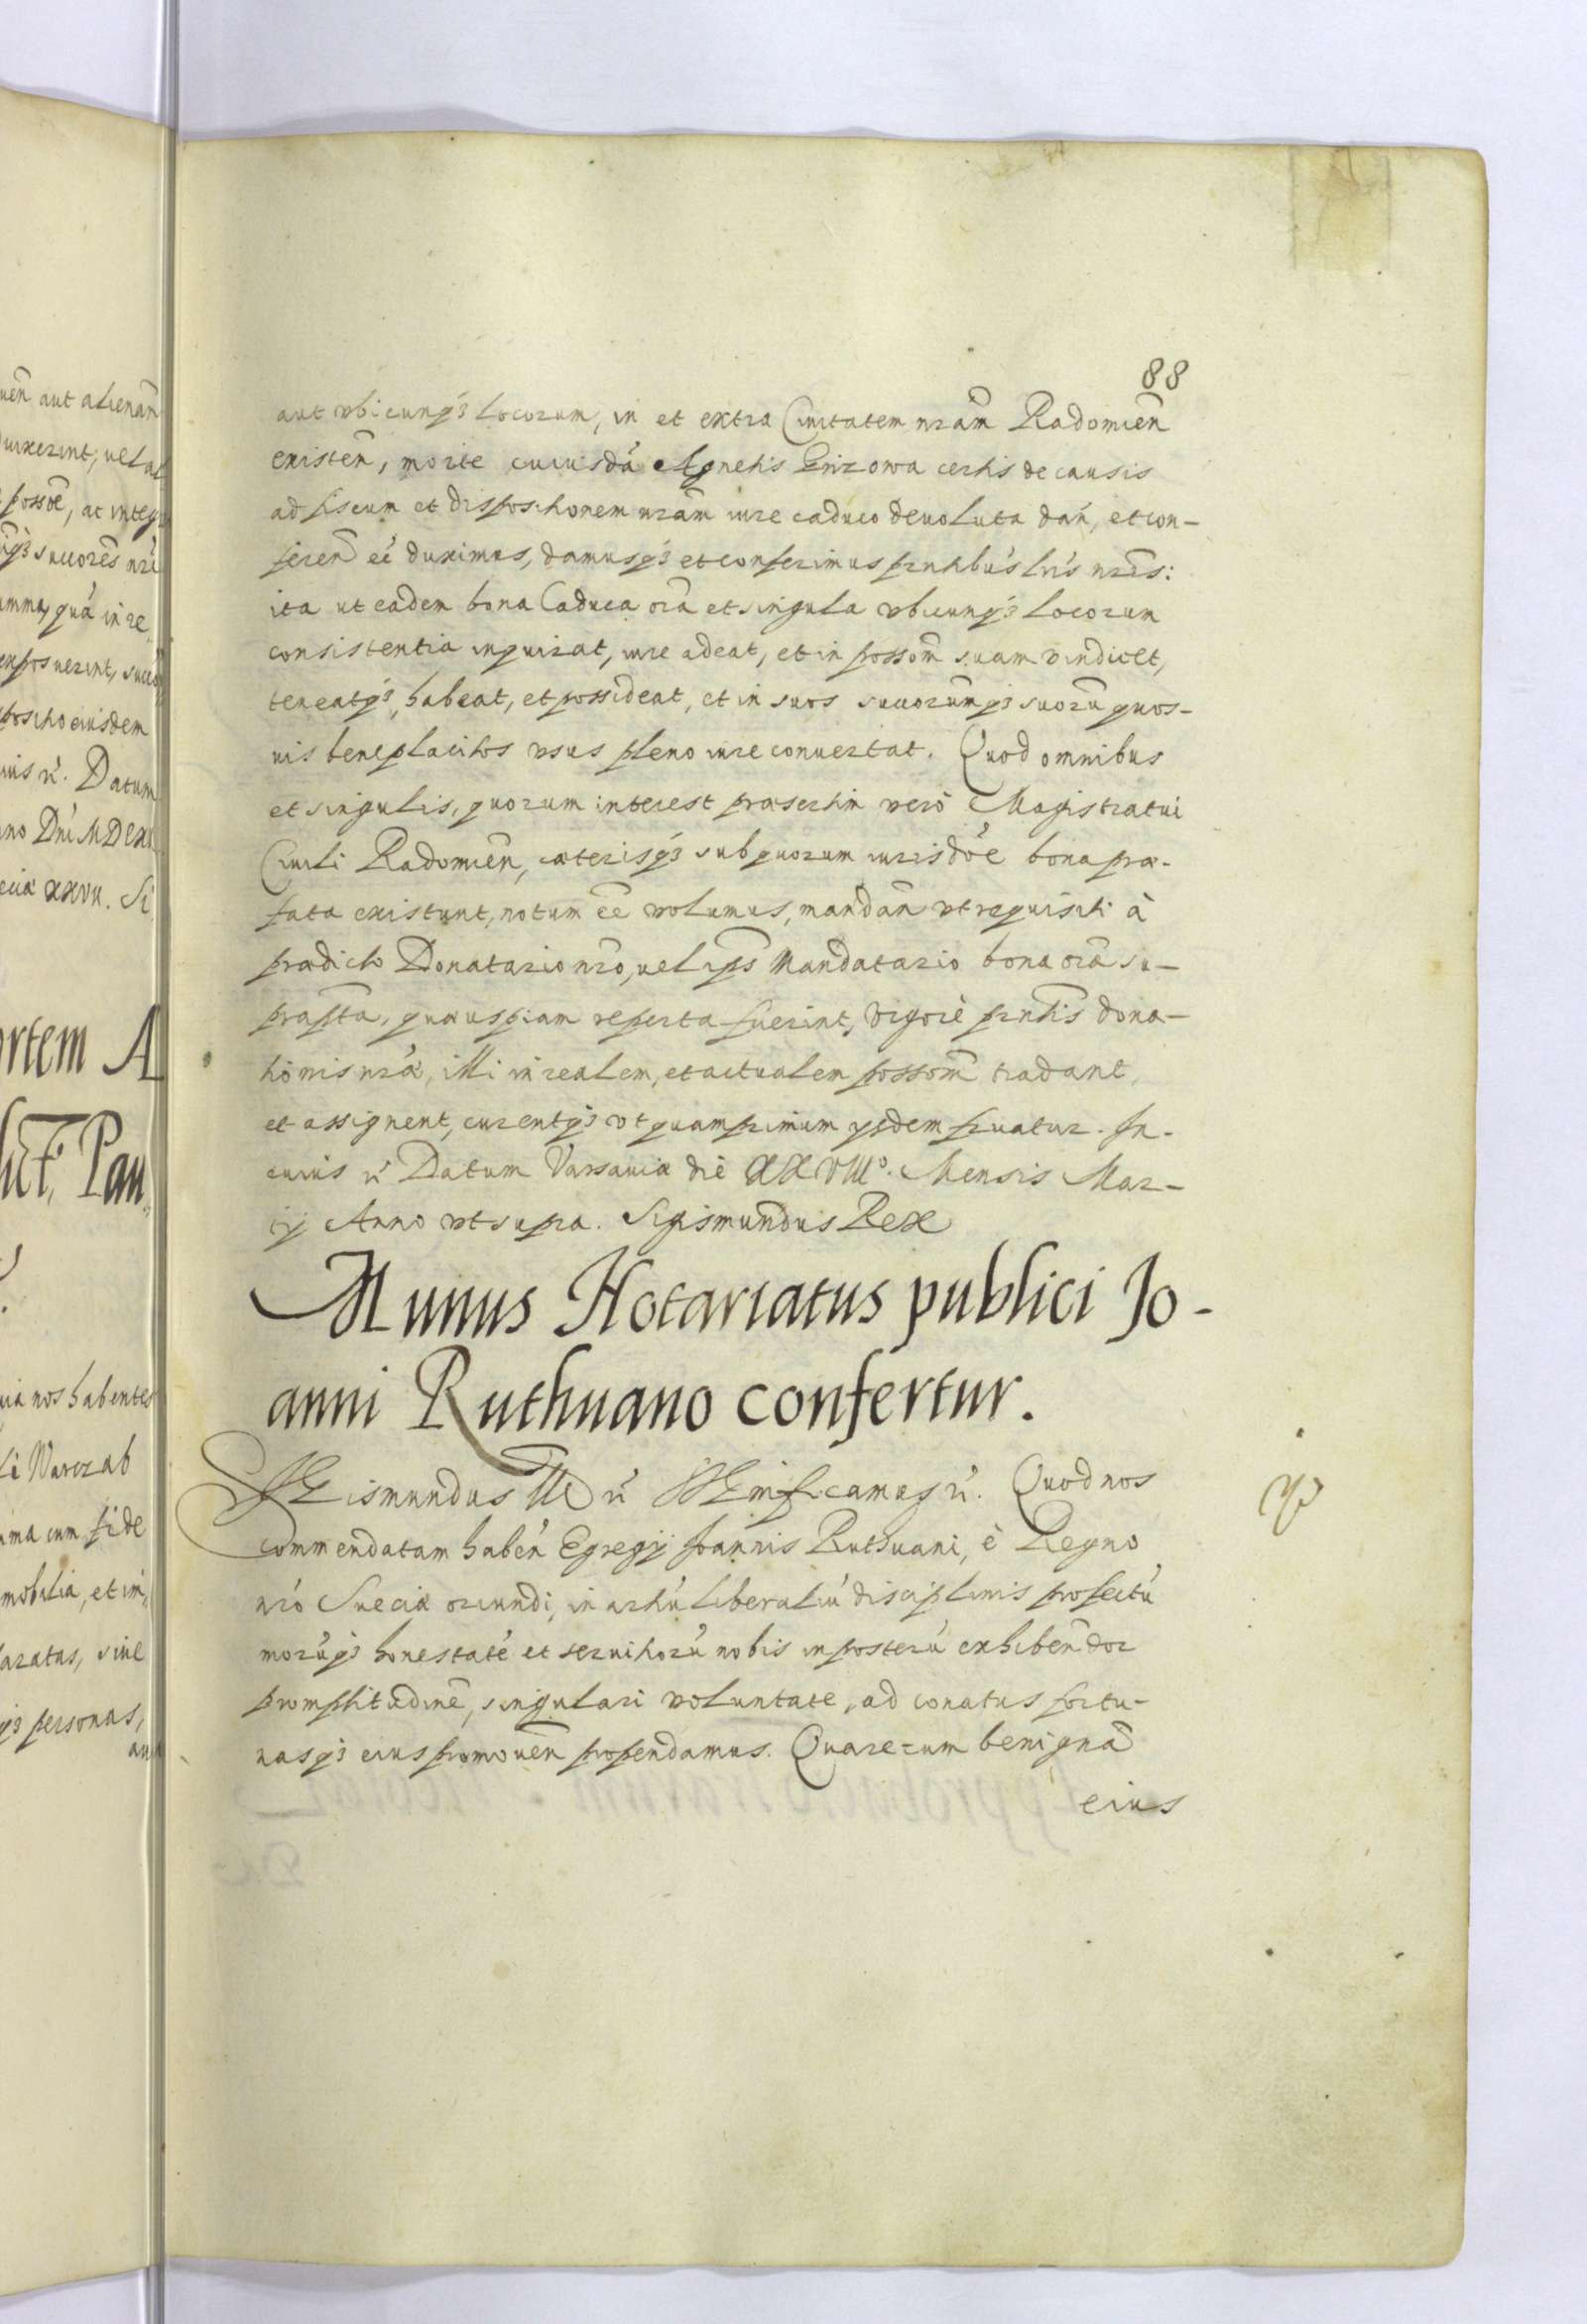 88
aut vbicunq3 locorum, in et extra Ciuitatem nrãm Radomieñ
existeñ, morte cuiusdã Agnetis Grizowa certis de causis
ad fiscum et dispositionem nrãm iure caduco deuoluta dañ, et con-
fereñ eẽ duximus, damusq3 et conferimus prñtibus lrĩs nrĩs:
ita ut eadem bona Caduca oĩa et singula vbicunq3 locorum
consistentia inquirat, iure adeat, et in possõm suam vindicet,
teneatq3, habeat, et possideat, et in suos succorũmq3 suorũ quos-
uis beneplacitos vsus pleno iure conuertat. Quod omnibus
et singulis, quorum interest præsertim verò Magistratui
Ciuili Radomieñ, cæterisq3 sub quorum iurisdõe bona præ-
fata existunt, notum eẽ volumus, mandañ vt requisiti à
prædicto Donatario nrõ, uel ips Mandatario bona oĩa su-
prapta, quæuspiam reperta fuerint, vigore prñtis dona-
tionis nrã, illi in realem, et actualem possom̃ tradant
et assignent, curentq3 vt quamprimum ysdem fruatur. In-
cuius rĩ Datum Varsauiæ die XXVIIIº. Mensis Mar-
tij Anno vt supra. Sigismundus Rex
Munus Notariatus publici Jo-
anni Ruthuano confertur.
Sigismundus III rĩ Significamus rĩ. Quod nos
commendatam habeñ Egregij Joannis Ruthuani, è Regno
nrõ Sueciæ oriundi, in artiũ liberaliũ disciplinis profectũ
morũq3 honestatẽ et seruitiorũ nobis in posterũ exhibeñdor
promptitudinẽ, singulari voluntate, ad conatus fortu-
nasq3 eius promoueñ propendamus. Quare cum benignã
eius
uẽn aut alienam
duxerint, uel al
possõe, ac integ
q3 succorẽs nrĩ
summa, quã in re
exposuerint, succo
positio eiusdem
uius rĩ. Datum
no Dnĩ MDCX
eciæ XXVII. Si
ortem A
Pau
uia nos habentes
Warczab
ima cum fide
mobilia, et im
aratas, siue
q3 personas,
aut